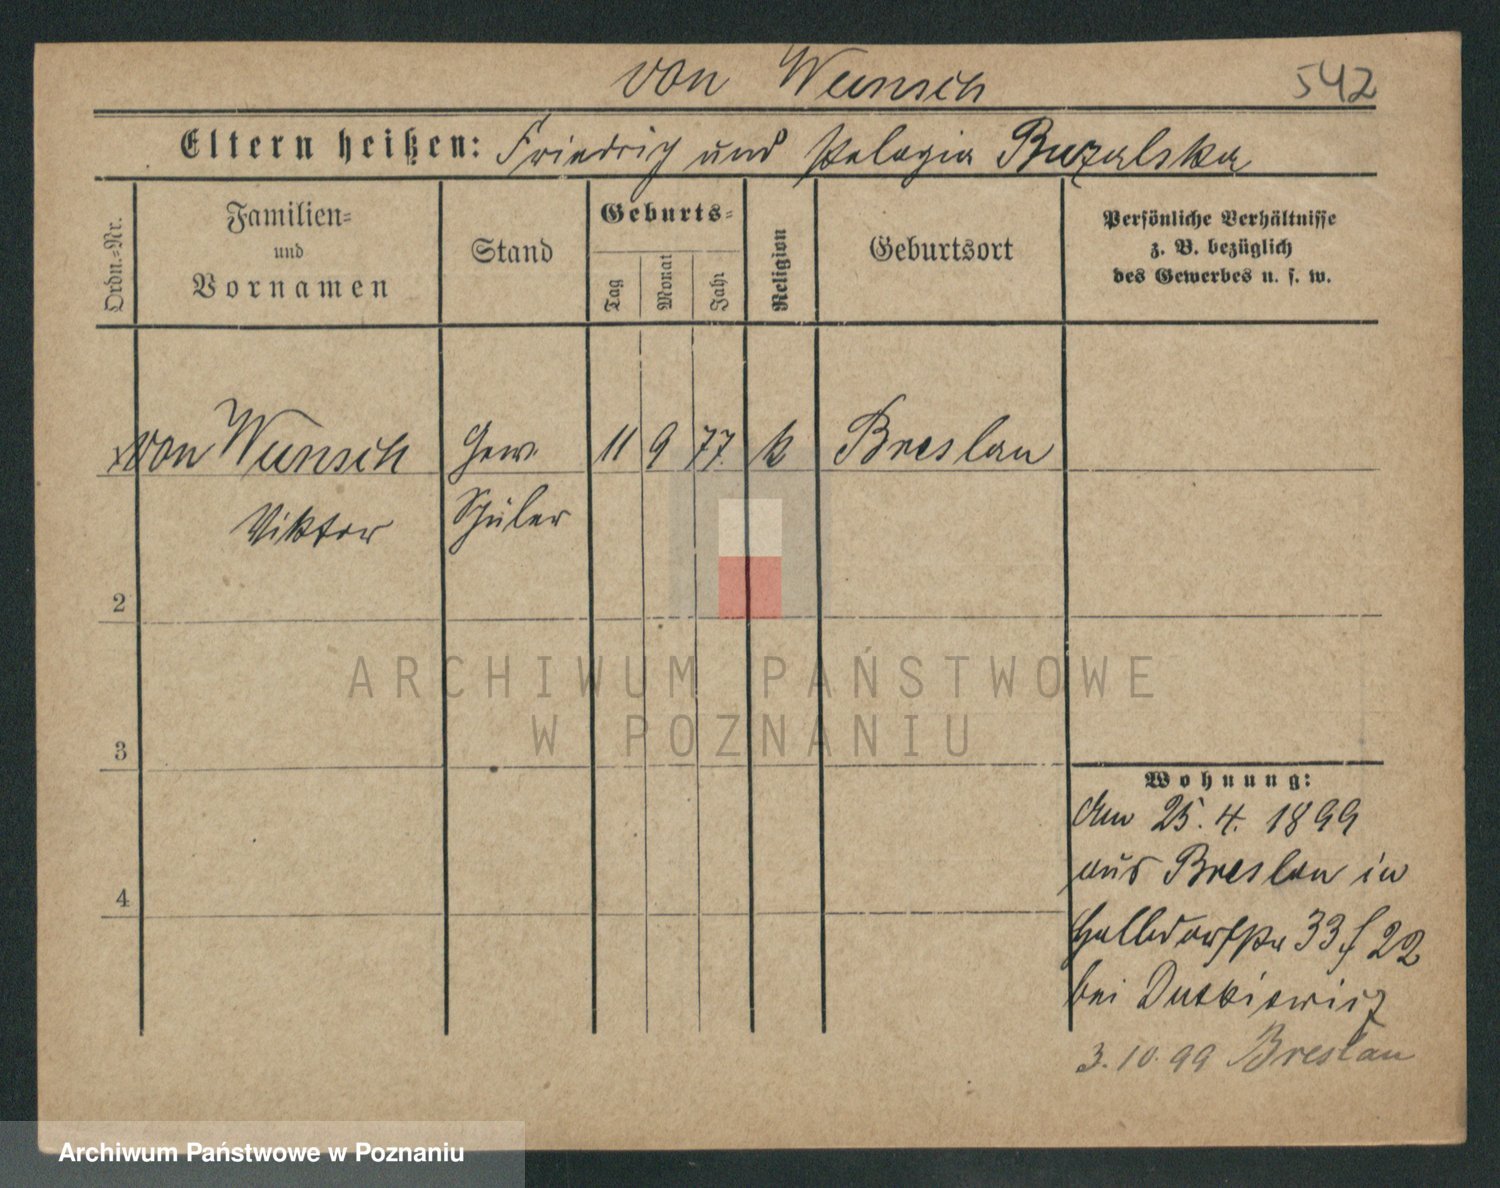 von Wunsch 542
Eltern heißen: Friedrich und Pelagia Buzalska
Ordn.-Nr.
Familien-
und
Vornamen
Stand
Geburts-
Tag
Monat
Jahr
Religion
Geburtsort
Persönliche Verhältnisse
z. B. bezüglich
des Gewerbes u. s. w.
von Wunsch Gew. 11 9 77. k Breslau
Viktor Schüler
2
3
4
ARCHIWUM PAŃSTWOWE
W POZNANIU
Wohnung:
Am 25. 4. 1899
aus Breslau in
33 22
bei Dutkiewicz
3. 10. 99 Breslau
Archiwum Państwowe w Poznaniu